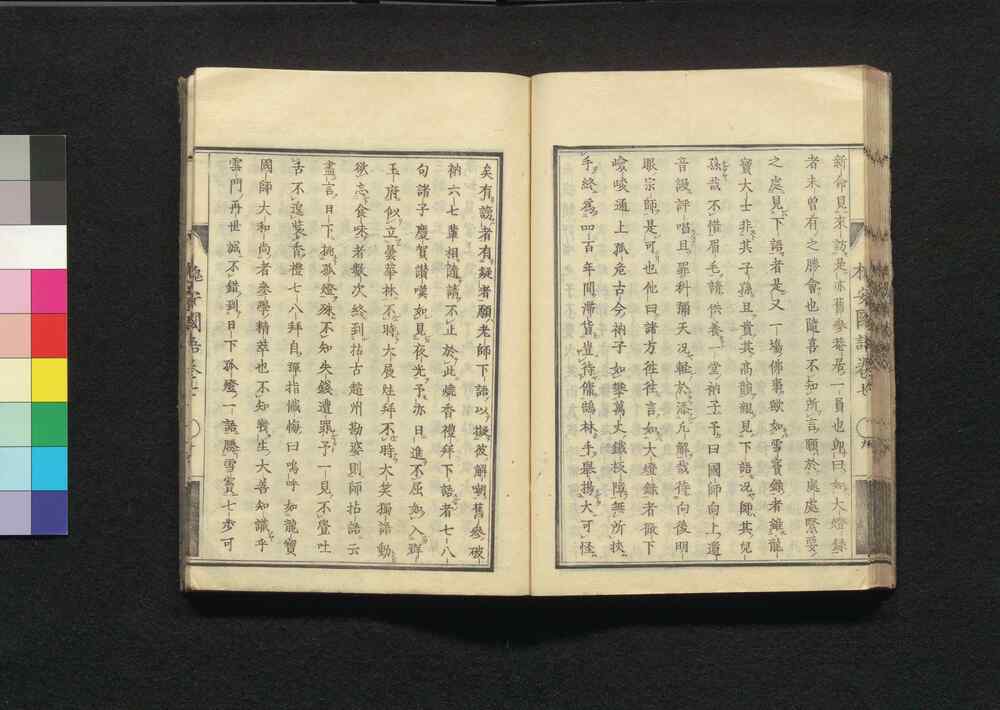 新命見來訪是亦舊參菴居一員也卽曰如大燈錄
者未曾有之勝會也隨喜不知所言願於處處緊要
之處見下語者是又一場佛事歟如雪竇錄者雖龍
寶大士非其子孫且貴其高韻親見下語況師其兒
孫哉不惜眉毛請供養一堂衲子予曰國師向上遺
音謾評唱且罪科彌天況輕於添凡解哉待向後明
眼宗師是可也他曰諸方往往言如大燈錄者徹下
嶮峻通上孤危古今衲子如攀萬丈鐵枝障無所挾
手終爲四百年間滯貨豈待鵠林手舉揚大可怪
矣有謗者有疑者願老師下語以擬彼解嘲舊參破
衲六七輩相隨請不止於此燒香禮拜下語者七八
句諸子慶賀讚嘆如見夜光予亦日進不屈如入群
玉府似立曇華林不時大展炷拜不時大笑獨語動
欲忘食味者數次終到拈古趙州勘婆則師拈語云
盡言日下挑孤燈殊不知失錢遭罪予一見不覺吐
舌不遑裝香禮七八拜自彈指懺悔曰嗚呼如龍寶
國師大和尚者參學精萃也不知幾生大善知識乎
雲門再世誠不錯到日下孤燈一語勝雪竇七步可
槐安國語卷七